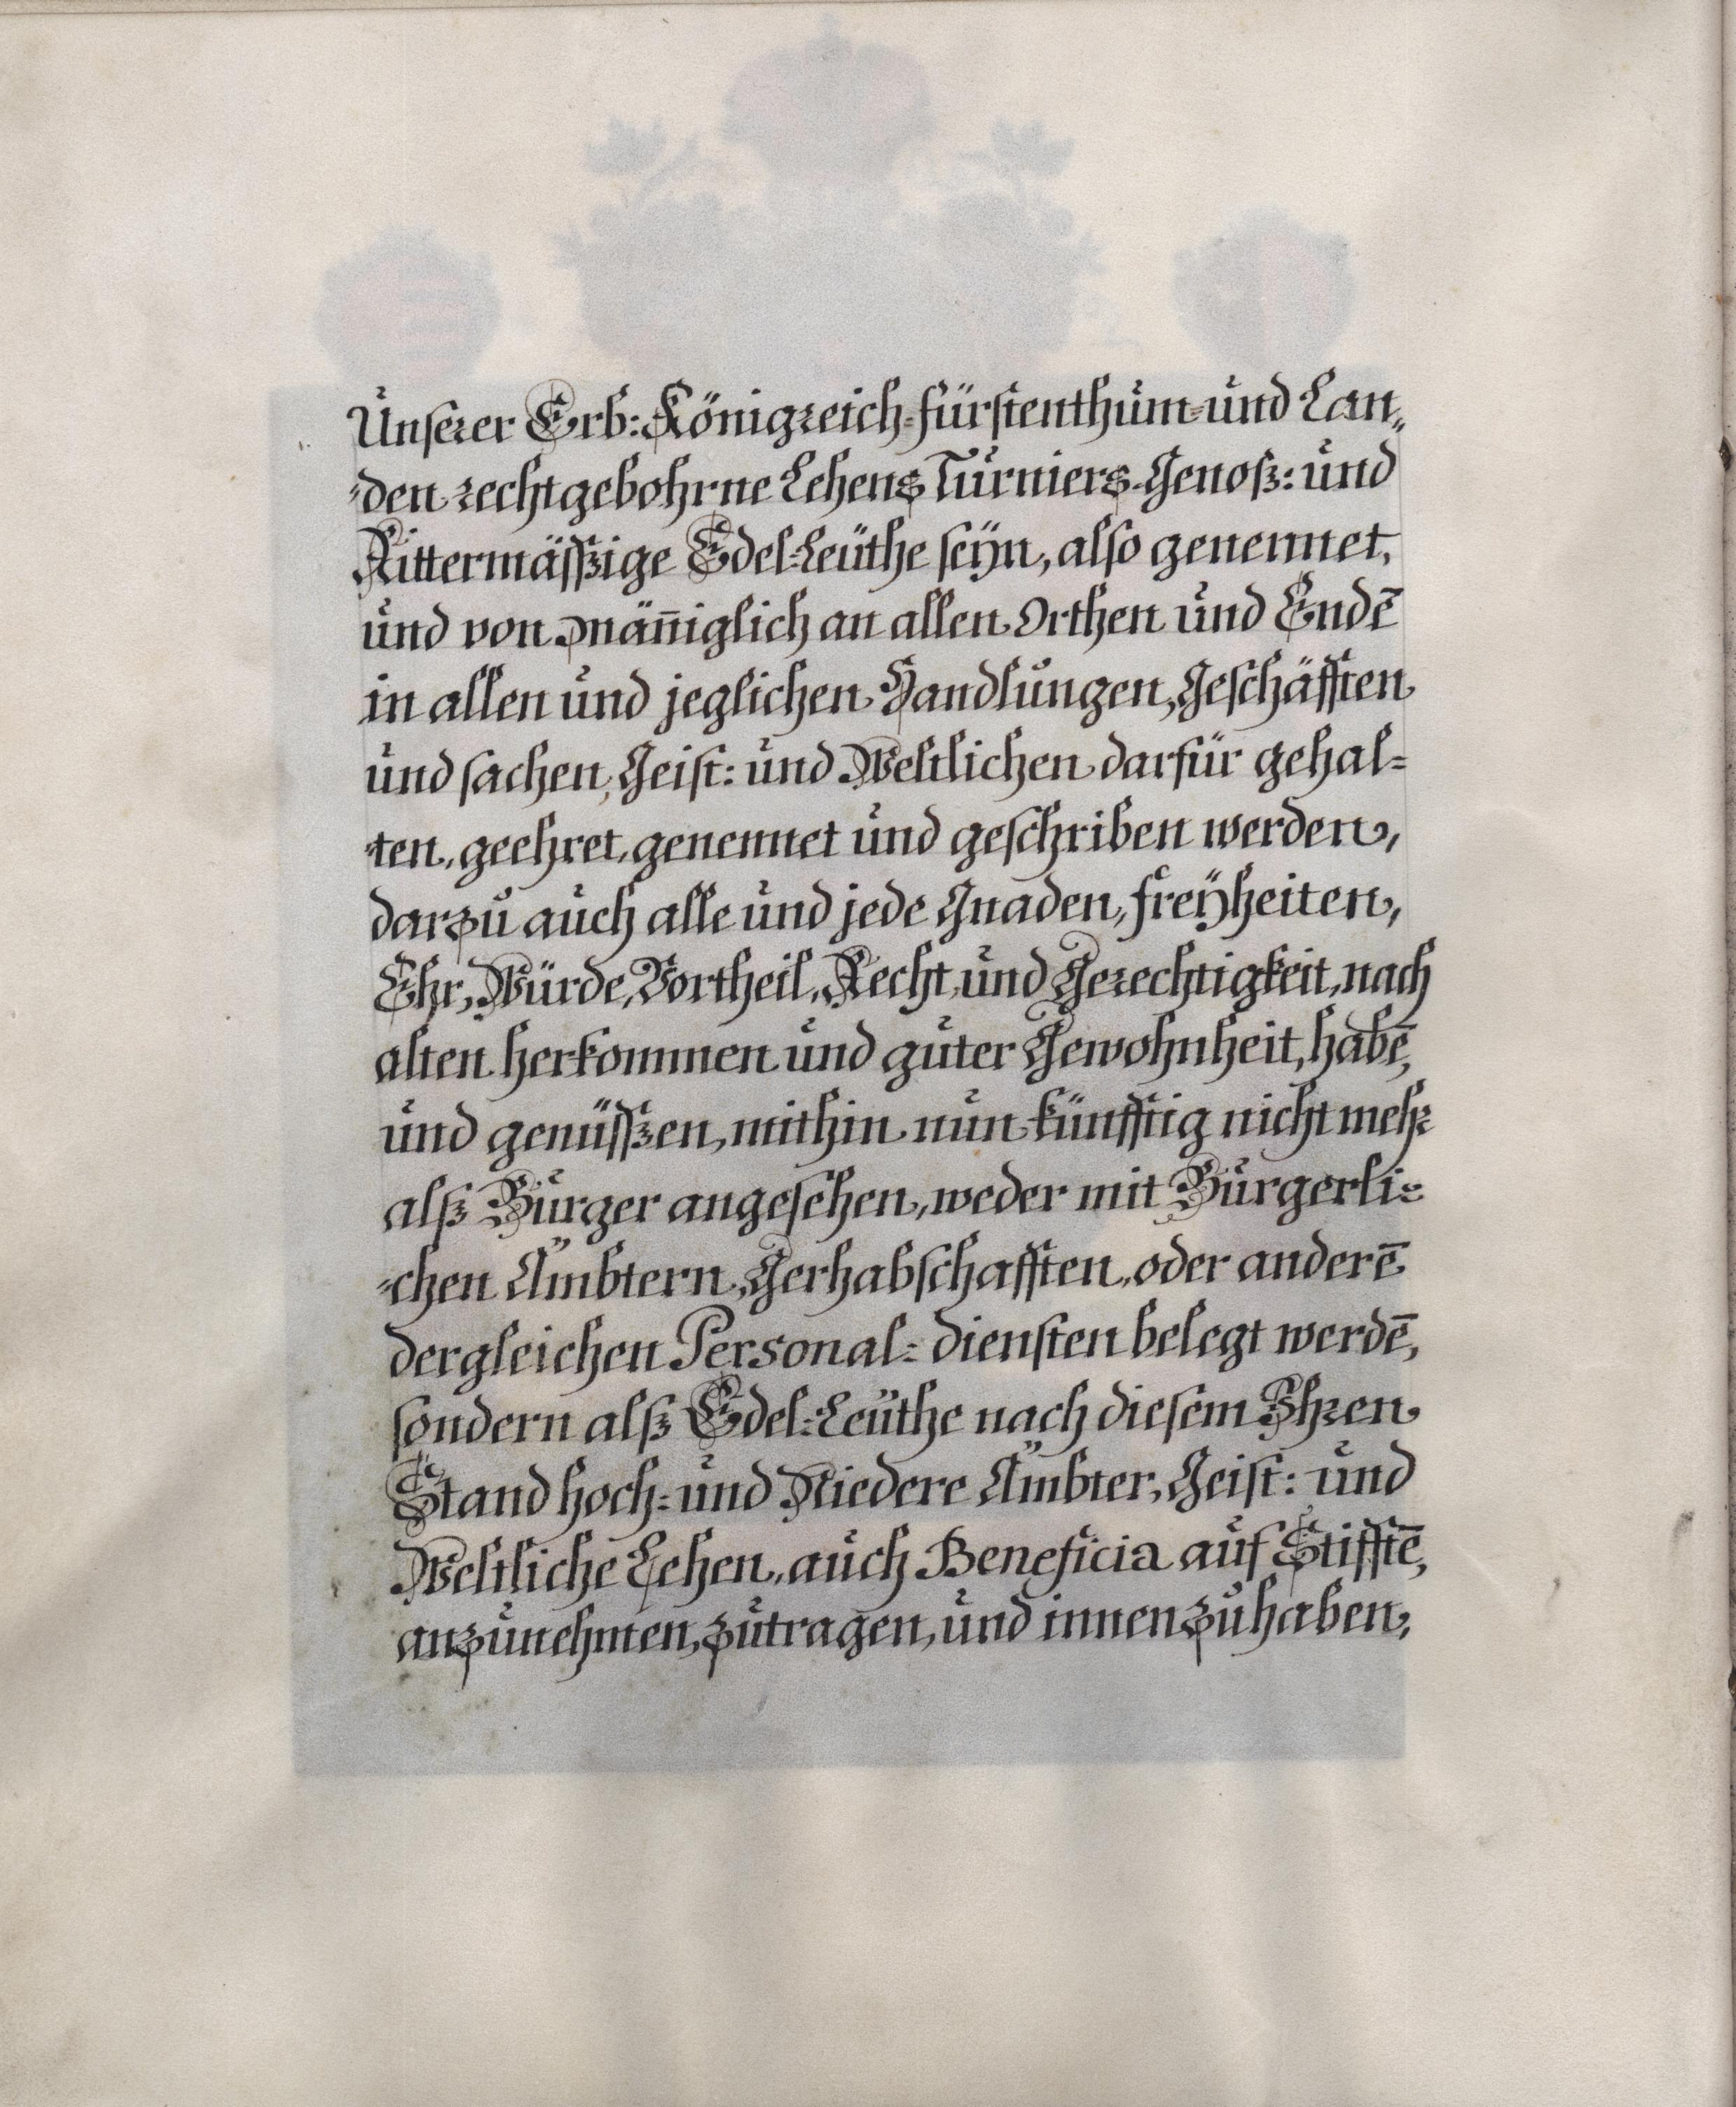 Unserer Erb: Königreich-fürstenthum-und Lan„
„den rechtgebohrne Lehens Turniers-Genoß: und
Rittermässzige Edel-Leüthe seÿn, also genennet,
und von mäñiglich an allen Orthen und Endē
in allen und jeglichen Handlungen, Geschäfften
und sachen, Geist: und Weltlichen darfür gehal=
„ten, geehret, genennet und geschriben werden,
darzu auch alle und jede Gnaden, freÿheiten,
Ehr, Würde, Vortheil, Recht, und Gerechtigkeit, nach
alten herkommen und guter Gewohnheit, habē,
und genüsszen, mithin nun künfftig nicht mehr
alß Bürger angesehen, weder mit Bürgerli=
„chen Ämbtern, Gerhabschafften, oder anderē
dergleichen Personal=diensten belegt werdē,
sondern alß Edel=Leüthe nach diesem Ihren
Stand hoch=und Niedere Ämbter, Geist: und
Weltliche Lehen, auch Beneficia auf Stifftē,
anzunehmen, zutragen, und innen zuhaben,